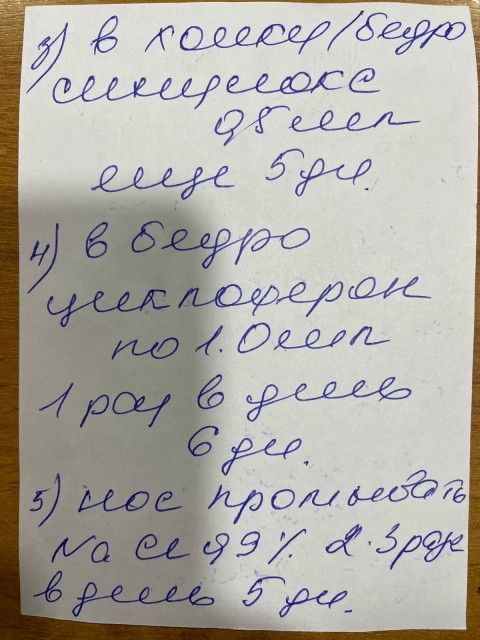 3) в холку/бедро
синулокс
0,5 мл
еще 5 дн.
4) в бедро
циклоферон
по 1.0 мл
1 раз в день
6 дн.
5) нос промывать
NaCl 0,9% 2-3 раза
в день 5 дн.